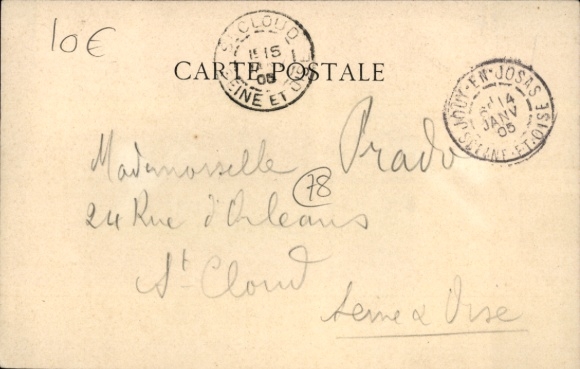 10€
ST CLOUD
15
05
SEINE ET OISE
CARTE POSTALE
JOUY-EN-JOSAS
14
JANV
05
SEINE-ET-OISE
Mademoiselle Prado
78
24 Rue d'Orléans
St-Cloud
Seine & Oise